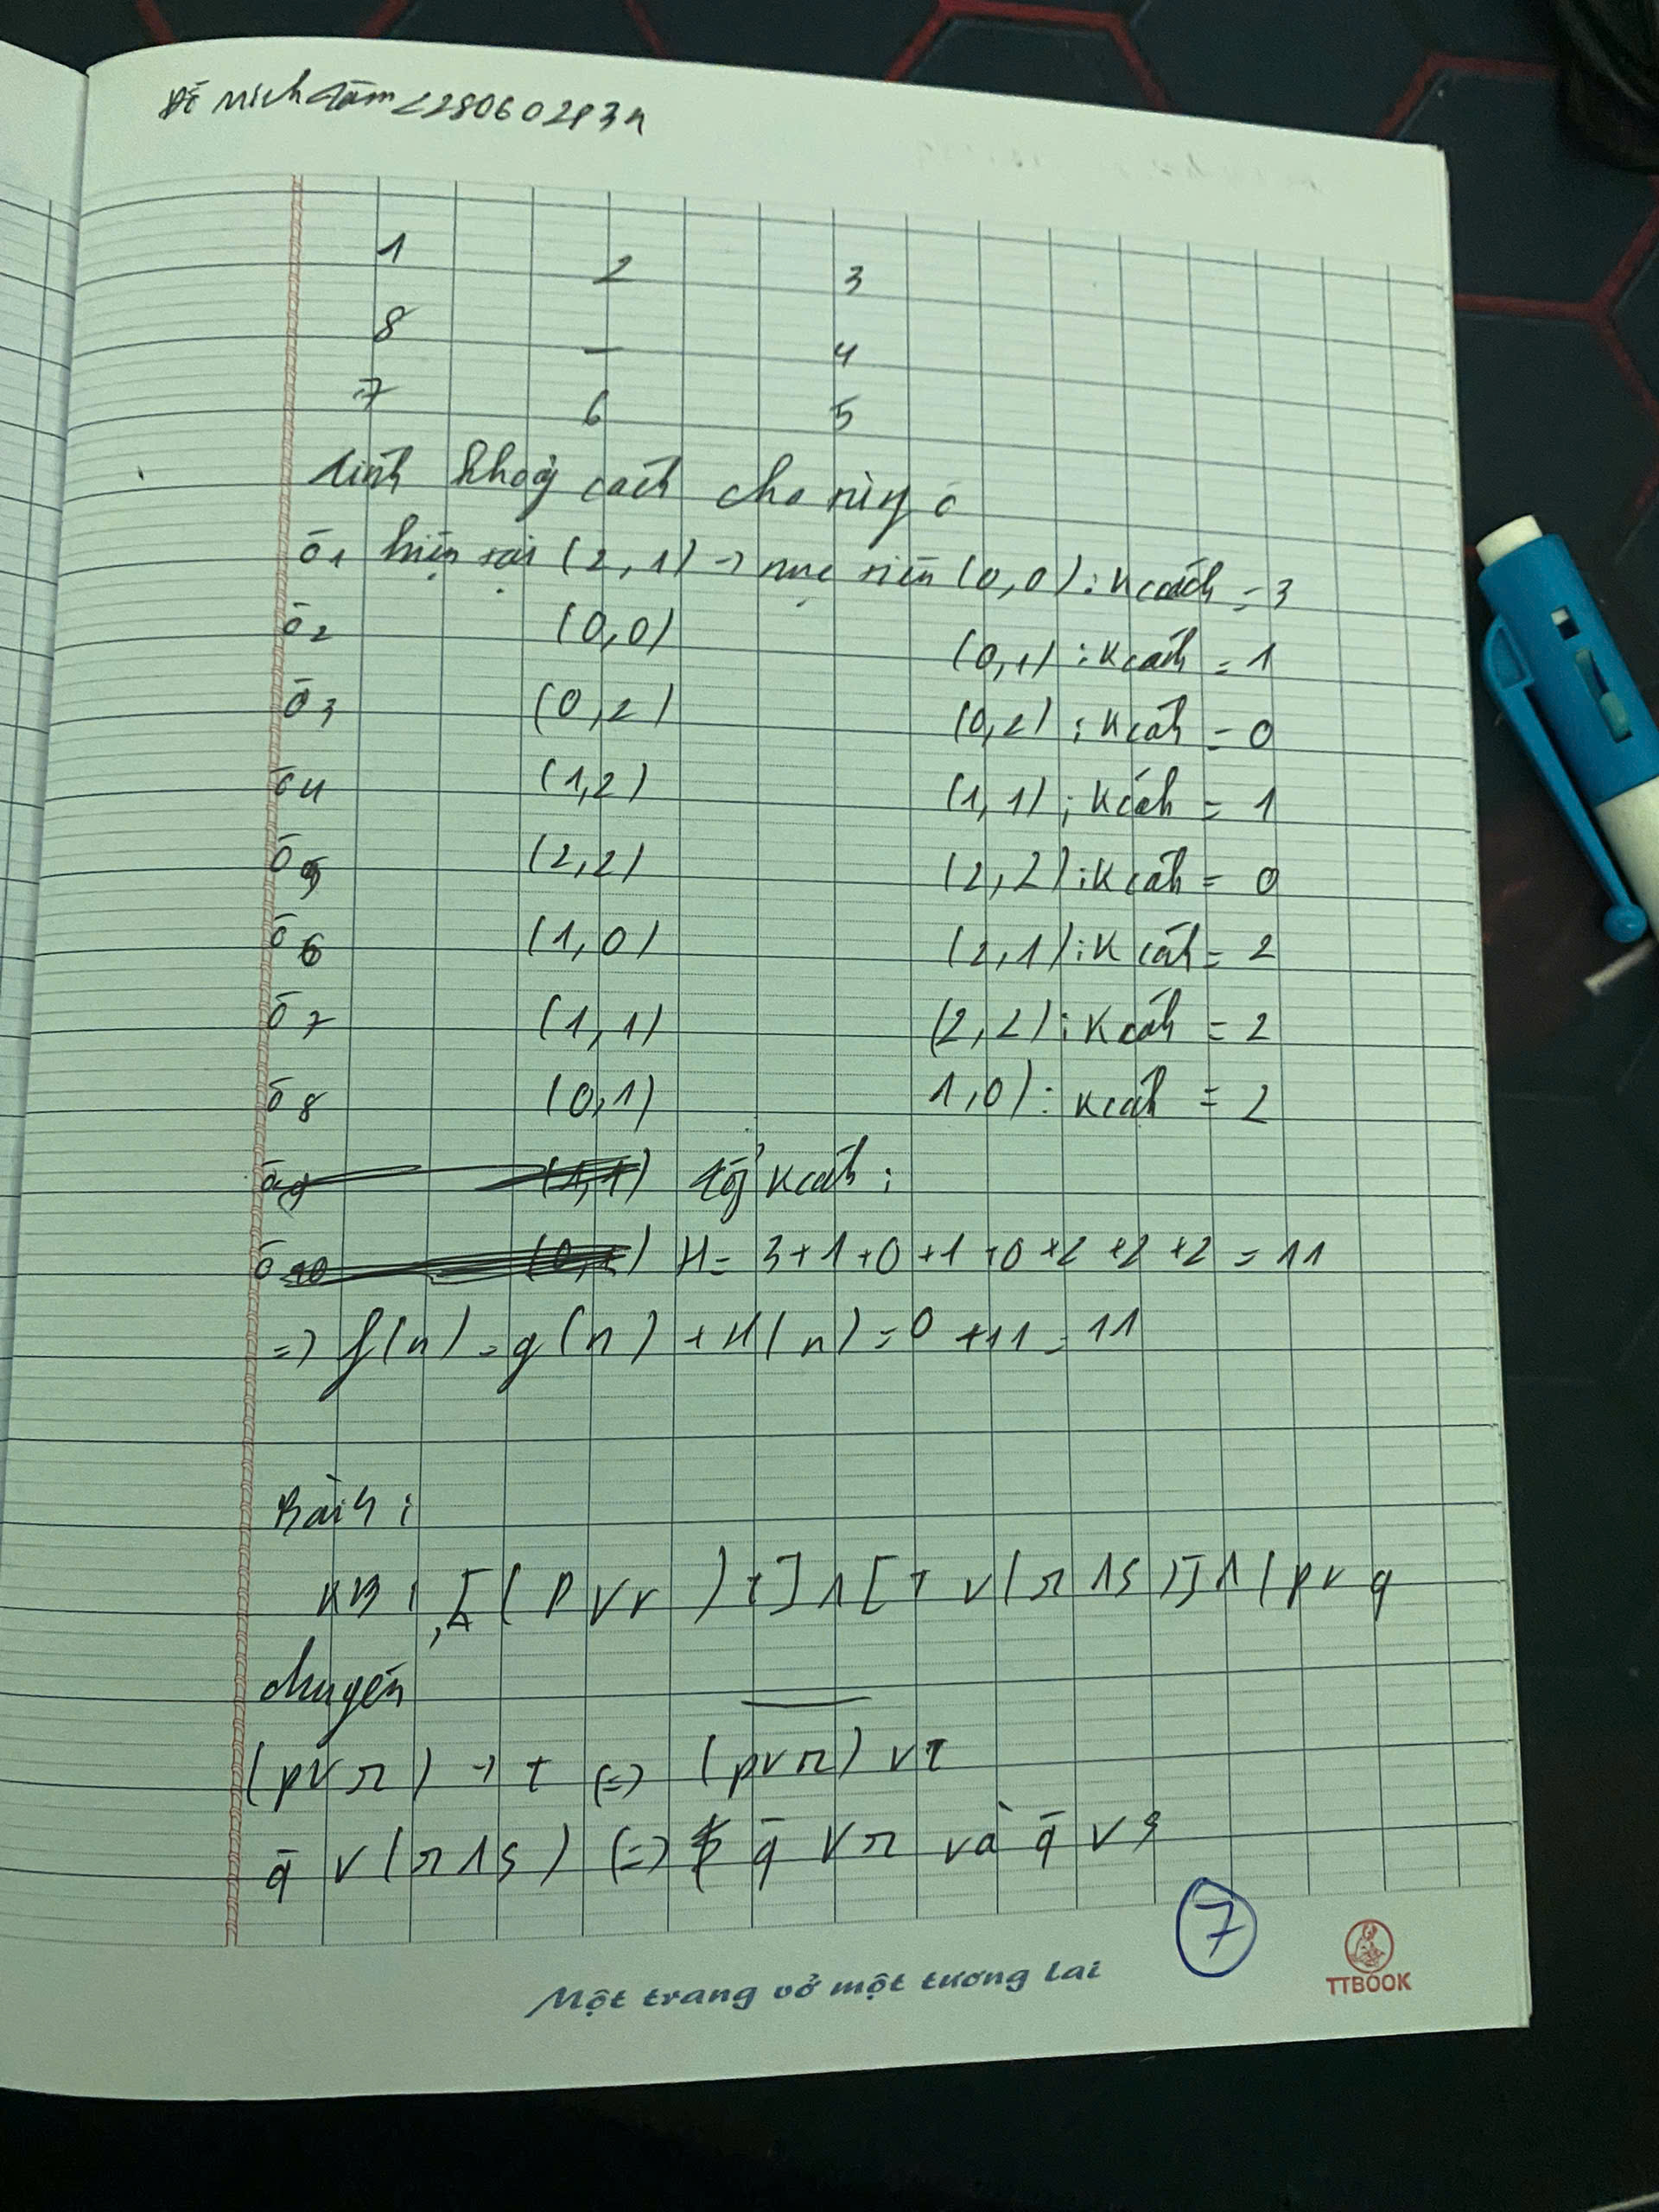 1 2 3
8 _ 4
7 6 5
Tính khoảng cách cho từng ô
ô1 hiện tại (2,1) → mục tiêu (0,0) : K cách = 3
ô2 (0,0) (0,1) : K cách = 1
ô3 (0,2) (0,2) : K cách = 0
ô4 (1,2) (1,1) : K cách = 1
ô5 (2,2) (2,2) : K cách = 0
ô6 (1,0) (2,1) : K cách = 2
ô7 (1,1) (2,2) : K cách = 2
ô8 (0,1) 1,0) : K cách = 2
tổng K cách :
H = 3+1+0+1+0+2+2+2 = 11
=> f(n) = g(n) + H(n) = 0 + 11 = 11
Bài 4 :
KB : [(p ∨ r) t] ∧ [ ∨ (r ∧ s)] ∧ (p ∨ q
chuyển
(p ∨ r) → t (=> (p̅ ∨ r̅) ∨ t
q̅ ∨ (r ∧ s) (=> q̅ ∨ r và q̅ ∨ s
7
Một trang vở một tương lai
TTBOOK